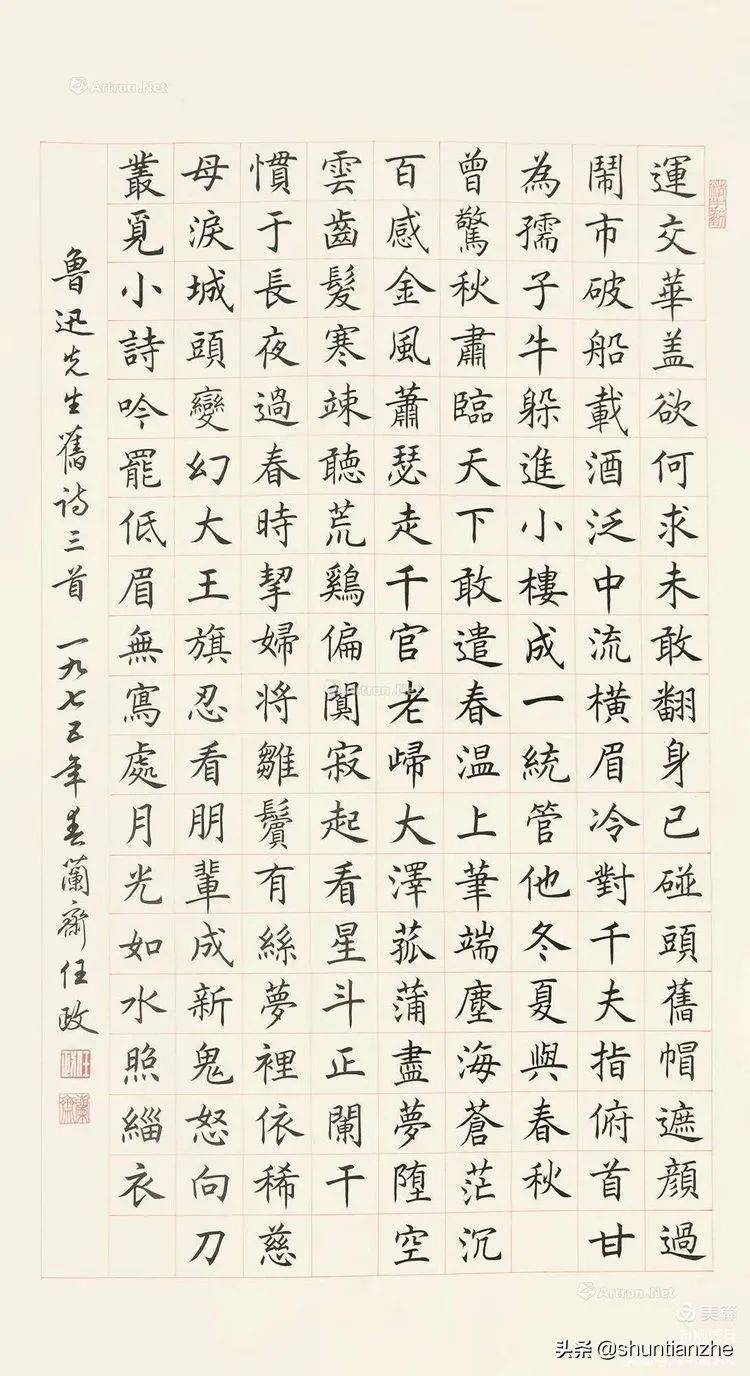 運交華盖欲何求未敢翻身已碰頭舊帽遮顔過
鬧市破船載酒泛中流横眉冷對千夫指俯首甘
為孺子牛躲進小樓成一統管他冬夏與春秋
曾驚秋肅臨天下敢遣春温上筆端塵海蒼茫沉
百感金風蕭瑟走千官老歸大澤菰蒲盡夢墮空
雲齒髮寒竦聽荒鷄偏闃寂起看星斗正闌干
慣于長夜過春時挈婦將雛鬢有絲夢裡依稀慈
母淚城頭變幻大王旗忍看朋輩成新鬼怒向刀
叢覓小詩吟罷低眉無寫處月光如水照緇衣
魯迅先生舊诗三首 一九七五年春蘭齋任政
Artron.Net
Artron.Net
Artron.Net
美篇
头条 @shuntianzhe